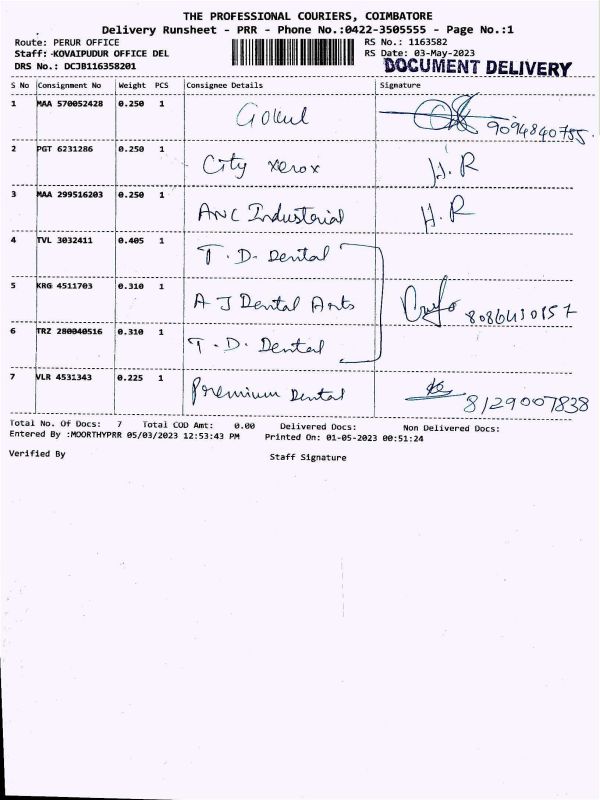 THE PROFESSIONAL COURIERS, COIMBATORE
Delivery Runsheet - PRR - Phone No.:0422-3505555 - Page No.:1
Route: PERUR OFFICE
RS No.: 1163582
Staff: KOVAIPUDUR OFFICE DEL
RS Date: 03-May-2023
DRS No.: DCJB116358201
DOCUMENT DELIVERY
S No Consignment No Weight PCS Consignee Details Signature
1 MAA 570052428 0.250 1 Gokul 9094840755
2 PGT 6231286 0.250 1 City xerox H.R
3 MAA 299516203 0.250 1 ANC Industerial H.R
4 TVL 3032411 0.405 1 T.D. Dental
5 KRG 4511703 0.310 1 A J Dental Arts
6 TRZ 280040516 0.310 1 T.D. Dental
7 VLR 4531343 0.225 1 Premium Dental 8129007838
Total No. Of Docs: 7 Total COD Amt: 0.00 Delivered Docs: Non Delivered Docs:
Entered By :MOORTHYPRR 05/03/2023 12:53:43 PM Printed On: 01-05-2023 00:51:24
Verified By Staff Signature